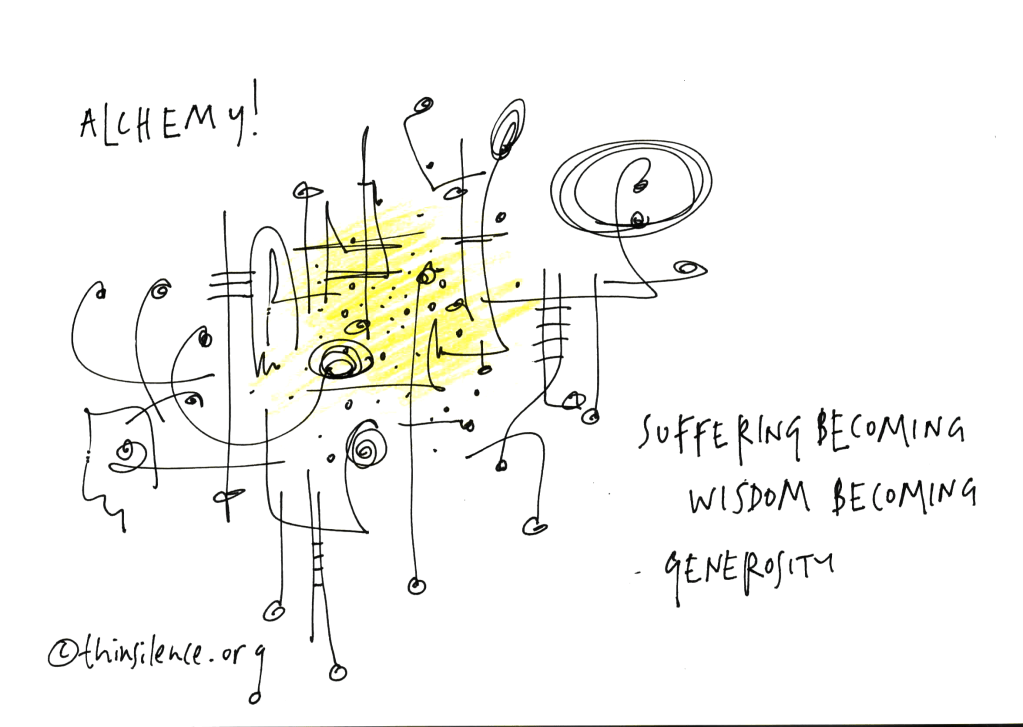 ALCHEMY!
SUFFERING BECOMING
WISDOM BECOMING
GENEROSITY
©thinsilence.org